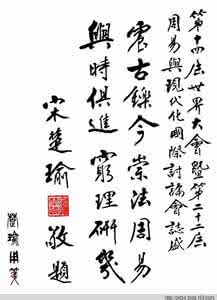 第十四屆世界大會暨第二十二屆
周易與現代化國際討論會誌盛
震古鑠今崇法周易
與時俱進窮理研幾
宋楚瑜
敬題